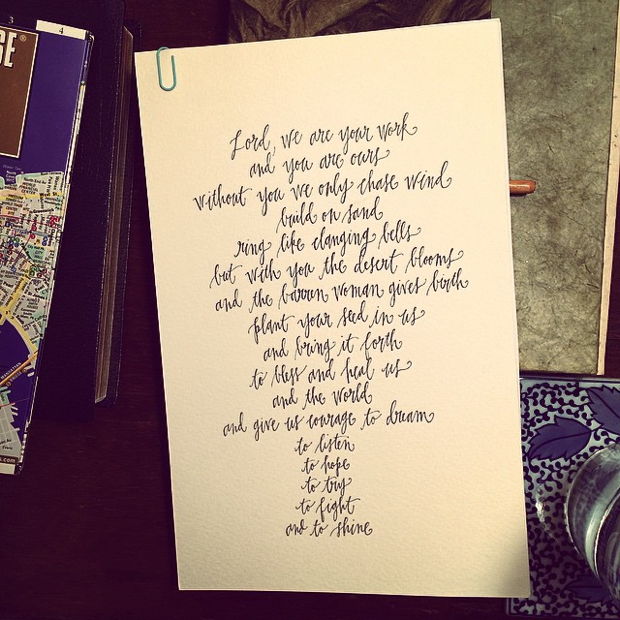 Lord, we are your work
and you are ours
without you we only chase wind
build on sand
ring like clanging bells
but with you the desert blooms
and the barren woman gives birth
plant your seed in us
and bring it forth
to bless and heal us
and the world
and give us courage to dream
to listen
to hope
to try
to fight
and to shine
3
4
SE®
s.com